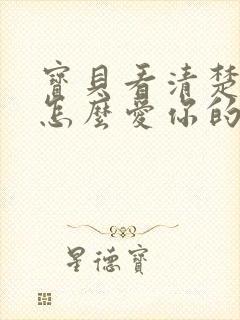 寶貝看清楚
怎麼愛你的
星德寶